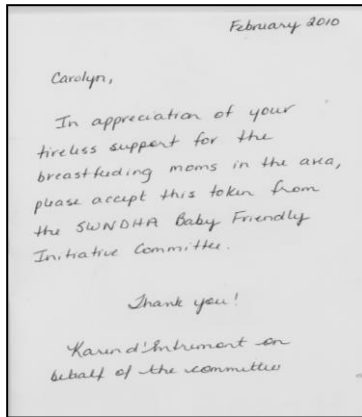 February 2010
Carolyn,
In appreciation of your
tireless support for the
breastfeeding moms in the area,
please accept this token from
the SWNDHA Baby Friendly
Initiative Committee.
Thank you!
Karen d'Entremont on
behalf of the committee